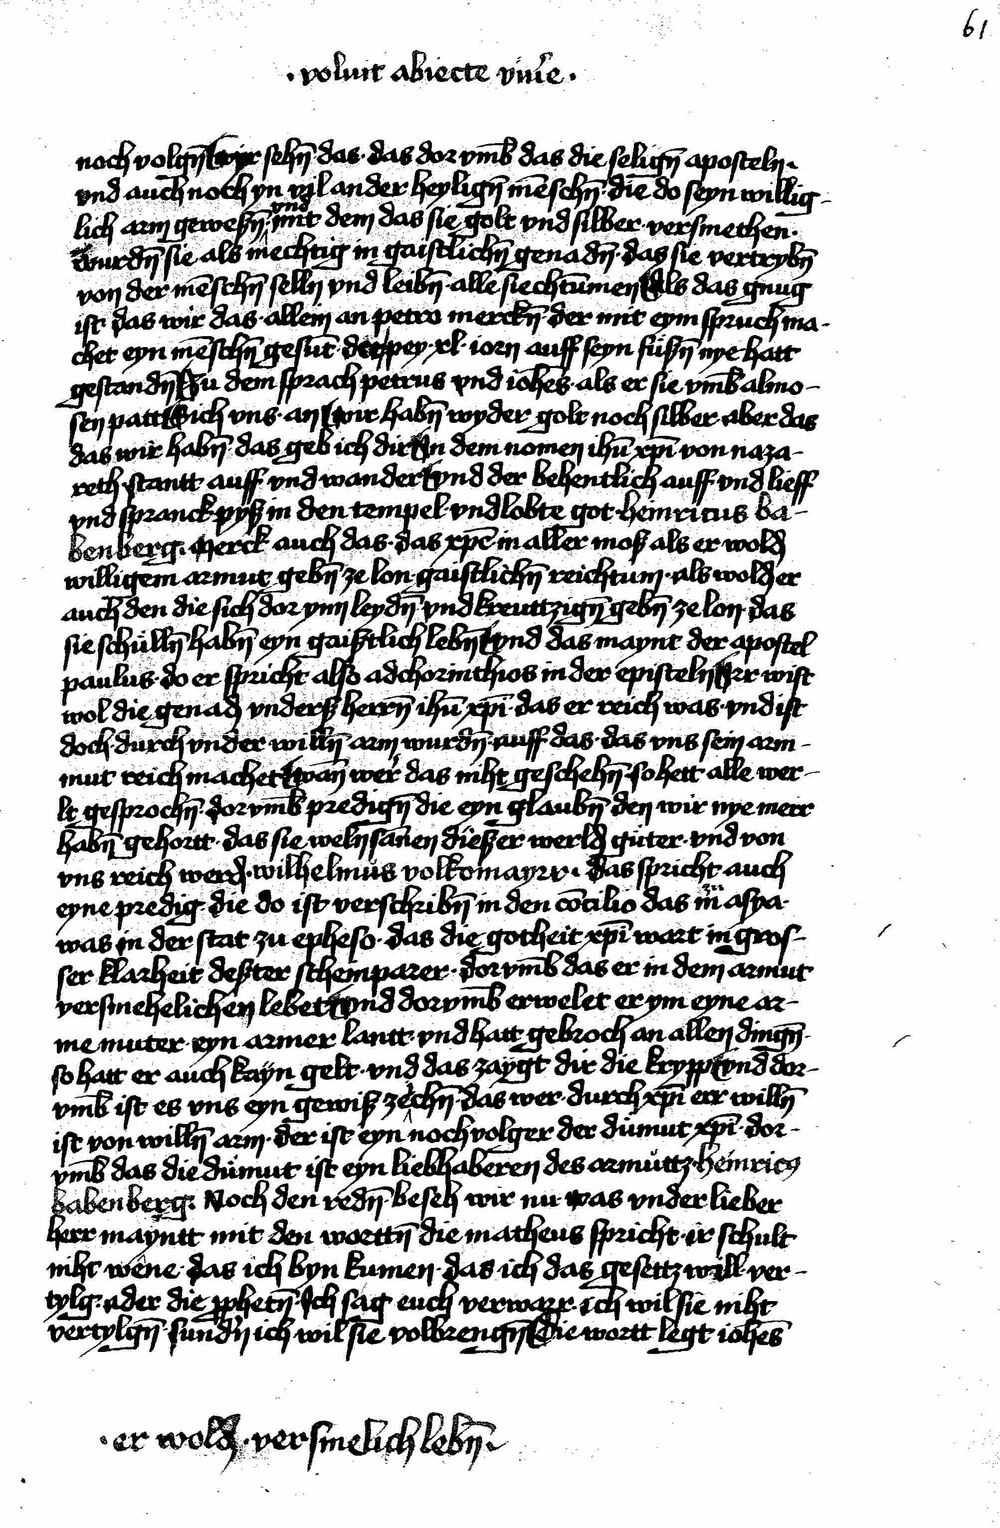 61
· voluit abiecte viu̅e ·
noch volgn̅ Wyr sehn̅ das · das dor vm̅b das die selign̅ aposteln ·
vnd auch noch yn vil ander heylign̅ me̅schn̅ · die̅ do seyn willig-
lich arm geweßn̅ · vnd mit dem das sie golt vnd silber · versmethen ·
wurdn̅ sie als mechtig in gaistlichn̅ genadn̅ · das sie vertrybn̅
von der me̅schn̅ selln̅ vnd leibn̅ · alle siechtu̅men Als das gnug
ist das wir das · allein an petro merckn̅ · der mit eym spruch ma-
chet eyn me̅schn̅ gesu̅t · der pey · xl · iorn auff seyn füßn̅ nye hatt
gestandn̅ Zu dem sprach petrus vnd ioh̅es · als er sie vm̅b almo-
sen patt Sich vns · an Wir habn̅ wyder golt noch silber · aber das
das wir habn̅ · das geb ich dir In dem nomen ih̅u xp̅i von naza-
reth · stantt auff · vnd wander Vnd der behentlich auff · vnd lieff
vnd spranck pyß in den tempel · vnd lobte got · heinricus ba-
benberg · Merck auch das · das xp̅c in aller moß als er wold
willigem armut gebn̅ ze lon gaistlichn̅ reichtum · als wold er
auch den die sich dor ynn leydn̅ vnd kreuttzign̅ gebn̅ ze lon das
sie schülln̅ habn̅ eyn gaistlich lebn̅ Vnd das maynt der apostel
paulus · do er spricht also ad chorinthios in der episteln Irr wist
wol die genad vnderß herrn̅ ih̅u xp̅i · das er reich was · vnd ist
doch · durch vnder willn̅ arm wurdn̅ · auff das · das vns sein arm-
mut reich machet Wan̅ wer das niht geschehn̅ · so hett alle wer-
lt gesprochn̅ · dorvm̅b predign̅ die eyn glaubn̅ den wir nye merr
habn̅ gehortt · das sie weln̅ sa̅nen dießer werld guter · vnd von
vns reich werd · wilhelmus volkomayrr · Das spricht auch
eyne predig · die do ist verschribn̅ in den co̅cilio das zu in asya ·
was in der stat zu epheso · das die gotheit xp̅i wart in gros-
ser klarheit dester schemparer · dorvm̅b das er in dem armut
versmehelichen lebet Vnd dorvm̅b erwelet er ym eyne ar-
me muter · eyn armer lantt · vnd hatt gebroch an allen dingn̅ ·
so hatt er auch kayn gelt · vnd das zaygt dir die krypp Vnd dor-
vm̅b ist es vns eyn gewiß zechn̅ · das wer · durch xp̅i err willn̅
ist von willn̅ arm · der ist eyn noch volger der dümut xp̅i · dor-
vm̅b das die dümut ist eyn liebhaberen des armuttz · heinricꝯ
babenberg : Noch den redn̅ · beseh wir nu was vnder lieber
herr mayntt mit den worttn̅ die matheus spricht · ir schult
niht we̅ne · das ich byn kumen · das ich das gesettz will · ver-
tylg · ader die ꝓphetn̅ · Ich sag euch verwarr · ich wil sie niht
vertylgn̅ · sundn̅ ich wil sie volbrengn̅ Die wortt legt ioh̅es
· er wold · versmelich lebn̅ ·